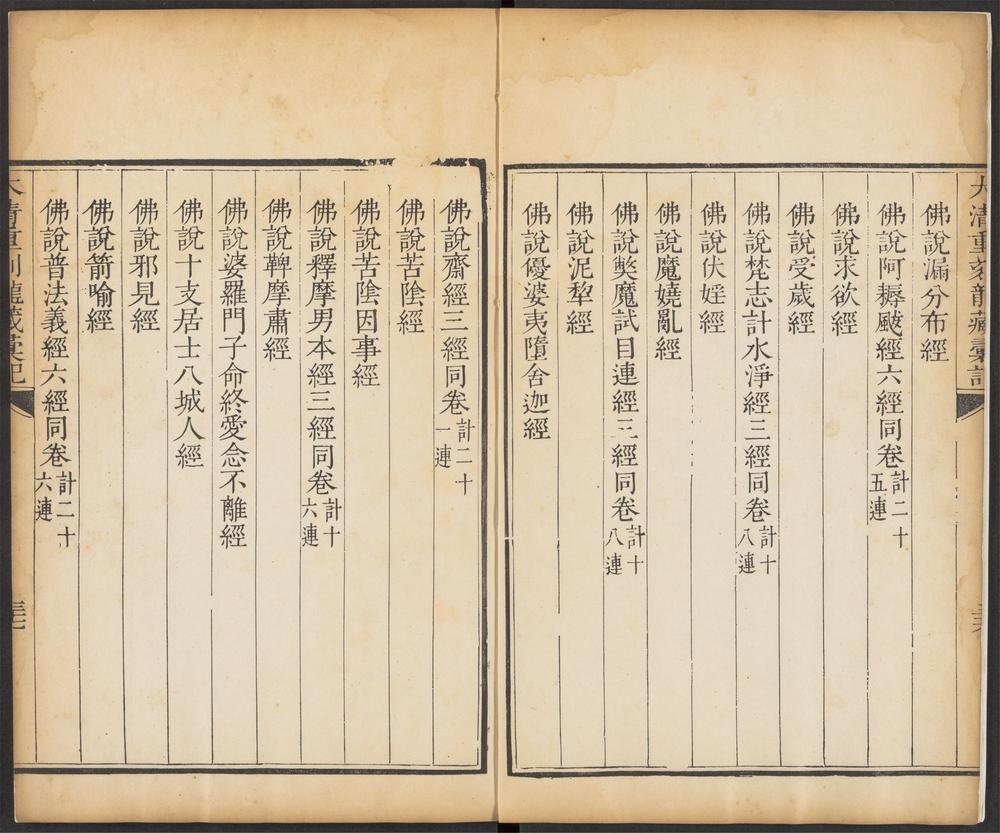 大清重刻龍藏彙記
佛說漏分布經
佛說阿耨颰經六經同卷計二十五連
佛說求欲經
佛說受歲經
佛說梵志計水淨經三經同卷計十八連
佛說伏婬經
佛說魔嬈亂經
佛說獘魔試目連經三經同卷計十八連
佛說泥犁經
佛說優婆夷墮舍迦經
佛說齋經三經同卷計二十一連
佛說苦陰經
佛說苦陰因事經
佛說釋摩男本經三經同卷計十六連
佛說鞞摩肅經
佛說婆羅門子命終愛念不離經
佛說十支居士八城人經
佛說邪見經
佛說箭喻經
佛說普法義經六經同卷計二十六連